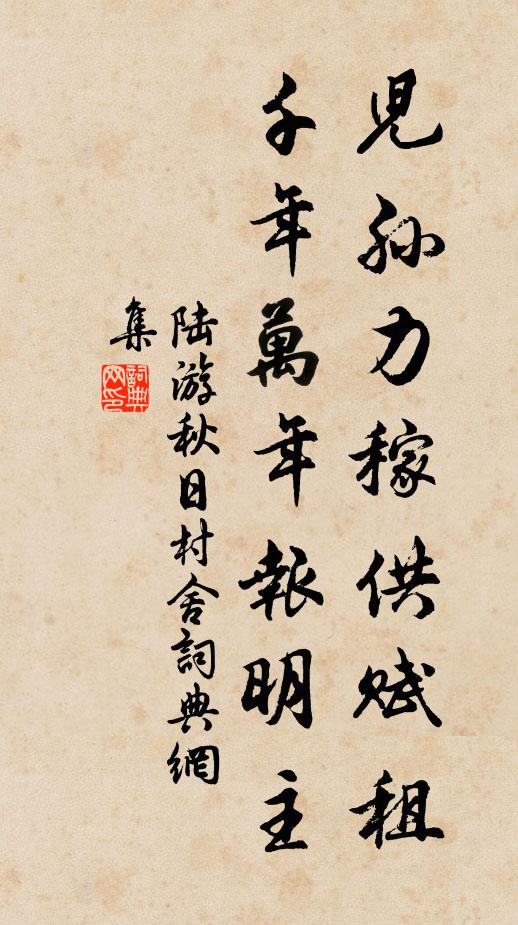 兒孫力稼供賦租
千年萬年報明主
陸游秋日村舍詞典網
集
詞典網印